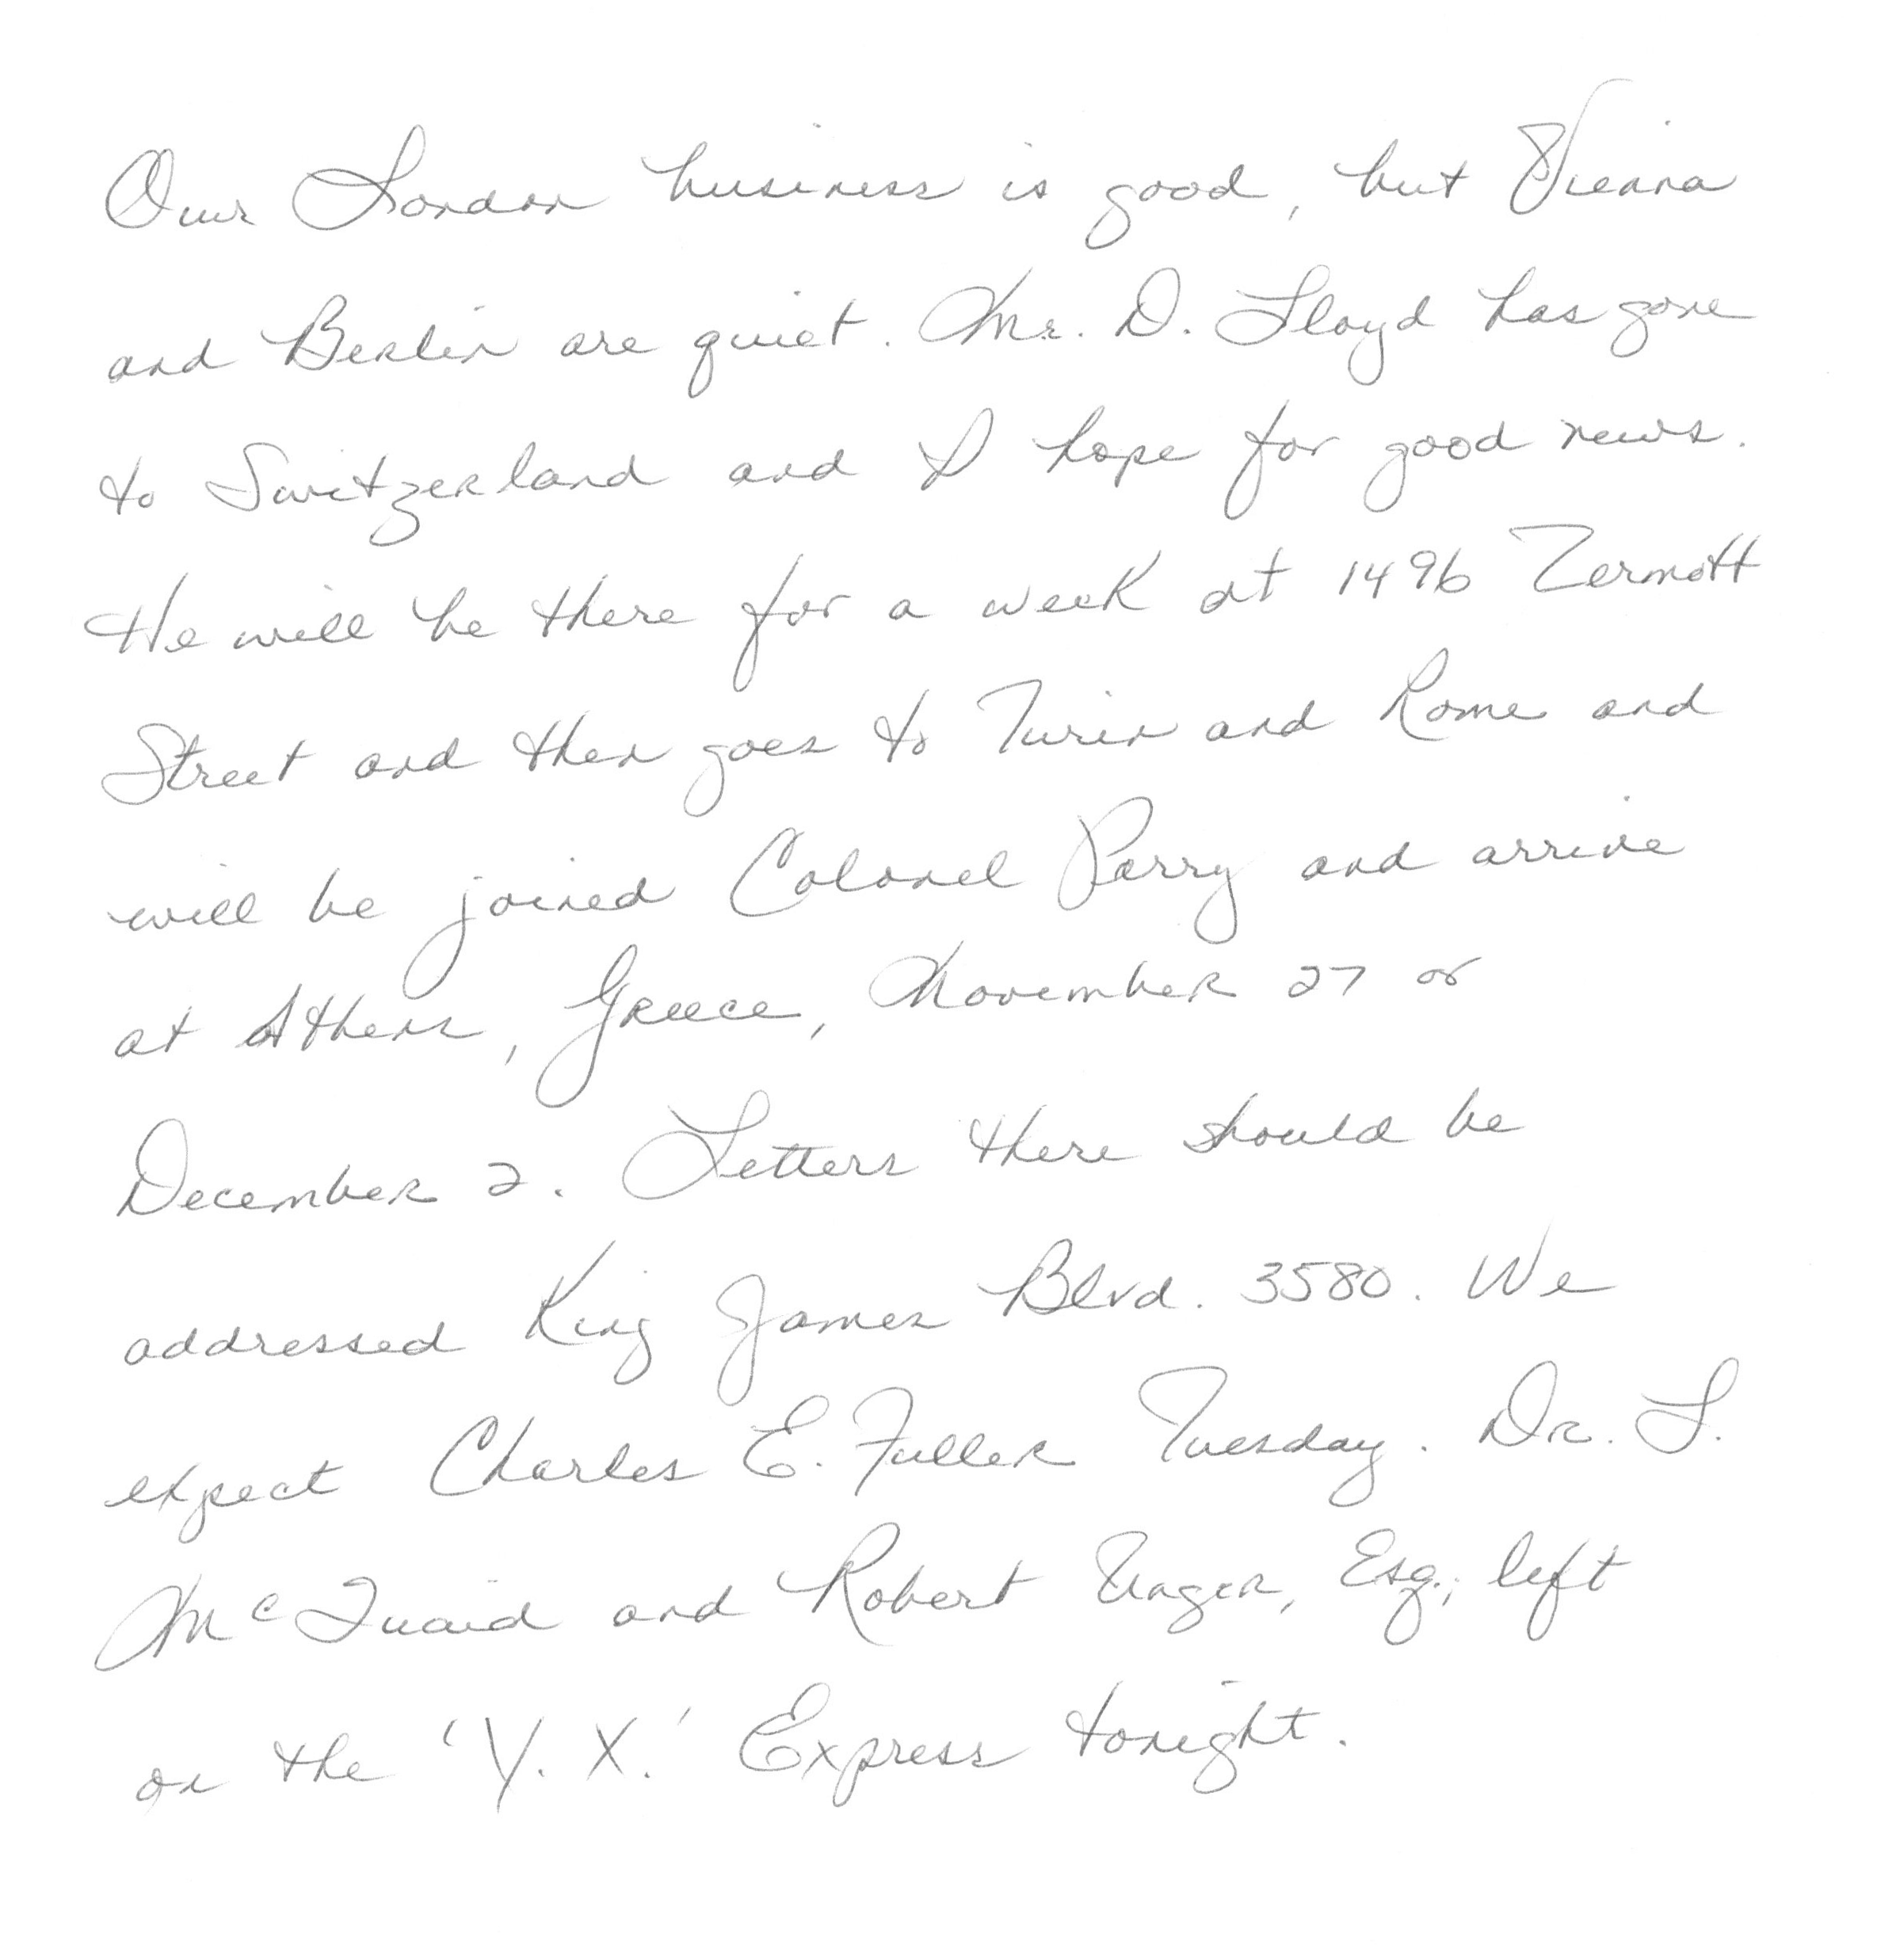 Our London business is good, but Vienna
and Berlin are quiet. Mr. D. Lloyd has gone
to Switzerland and I hope for good news.
He will be there for a week at 1496 Zermott
Street and then goes to Turin and Rome and
will be joined Colonel Parry and arrive
at Athens, Greece, November 27 or
December 2. Letters there should be
addressed King James Blvd. 3580. We
expect Charles E. Fuller Tuesday. Dr. L.
McQuaid and Robert Unger, Esq., left
on the 'Y. X.' Express tonight.